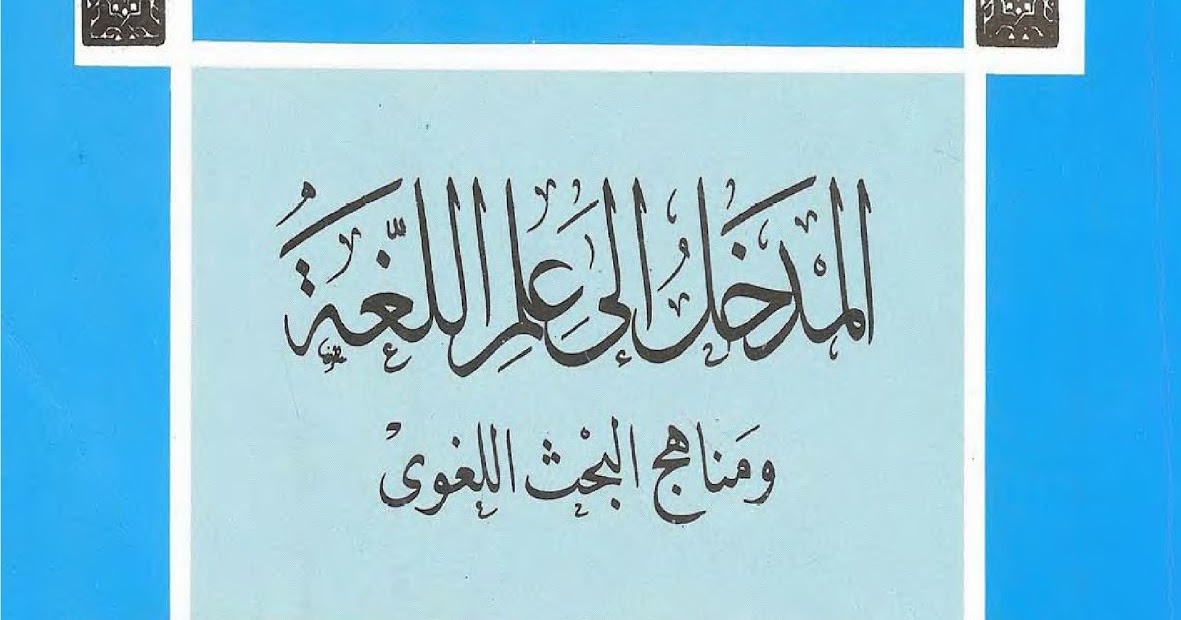 المدْخَلُ إلى عِلمِ اللّغَةِ
ومَناهج البحْث اللغوىْ